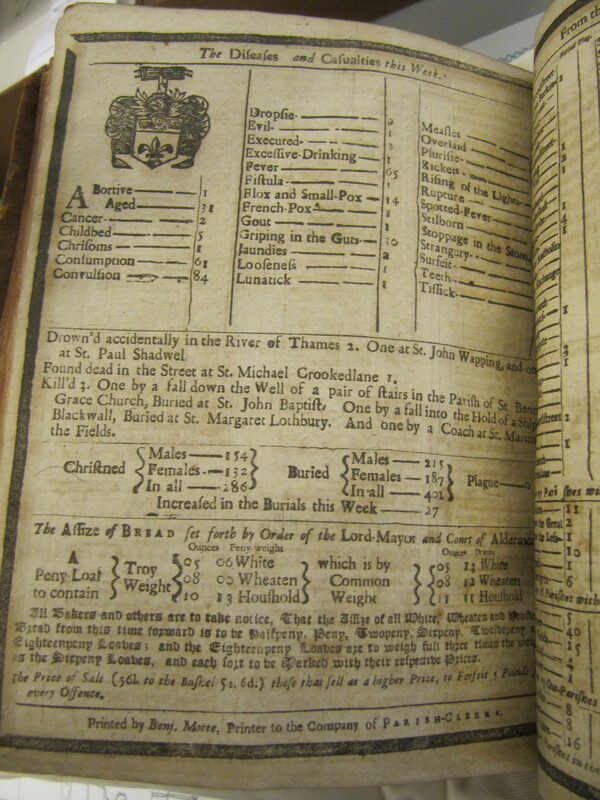 The Diseases and Casualties this Week.
ABortive 1
Aged 31
Cancer 2
Childbed 5
Chrisoms 1
Consumption 61
Convulsion 84
Dropsie
Evil 1
Executed
Excessive-Drinking 1
Fever 65
Fistula 1
Flox and Small-Pox 14
French-Pox
Gout 1
Griping in the Guts 30
Jaundies 2
Looseness 1
Lunatick 1
Measles
Overlaid
Plurisie
Ricket
Rising of the Lights
Rupture
Spotted-Fever
Stilborn
Stoppage in the Stom
Strangury
Surfeit
Teeth
Tissick
Drown'd accidentally in the River of Thames 2. One at St. John Wapping, and on
at St. Paul Shadwel.
Found dead in the Street at St. Michael Crookedlane 1.
Kill'd 3. One by a fall down the Well of a pair of stairs in the Parish of St. Benn
Grace Church, Buried at St. John Baptist, One by a fall into the Hold of a Ship
Blackwall, Buried at St. Margaret Lothbury. And one by a Coach at St. Martin
the Fields.
Christned { Males 154 Females 132 In all 286 } Buried { Males 215 Females 187 In all 402 } Plague 0
Increased in the Burials this Week 27
The Assize of BREAD set forth by Order of the Lord-Mayor and Court of Aldermen
Ounces Peny-weight Ounces Drams
A Troy 05 06 White which is by 05 13 White
Peny-Loaf 08 00 Wheaten Common 08 12 Wheaten
to contain Weight 10 13 Houshold Weight 11 11 Houshold
All Bakers and others are to take notice, That the Assize of all White, Wheaten and Houshold
Bread from this time forward is to be Halfpeny, Peny, Twopeny, Sixpeny, Twelvepeny
Eighteenpeny Loaves; and the Eighteenpeny Loaves are to weigh full three times the weight
as the Sixpeny Loaves, and each sort to be Marked with their respective Prices.
the Price of Sale (56l. to the Bushel 5s. 6d.) those that sell at a higher Price, to Forfeit 5 Pounds
every Offence.
Printed by Benj. Motte, Printer to the Company of PARISH-CLERKS.
From th